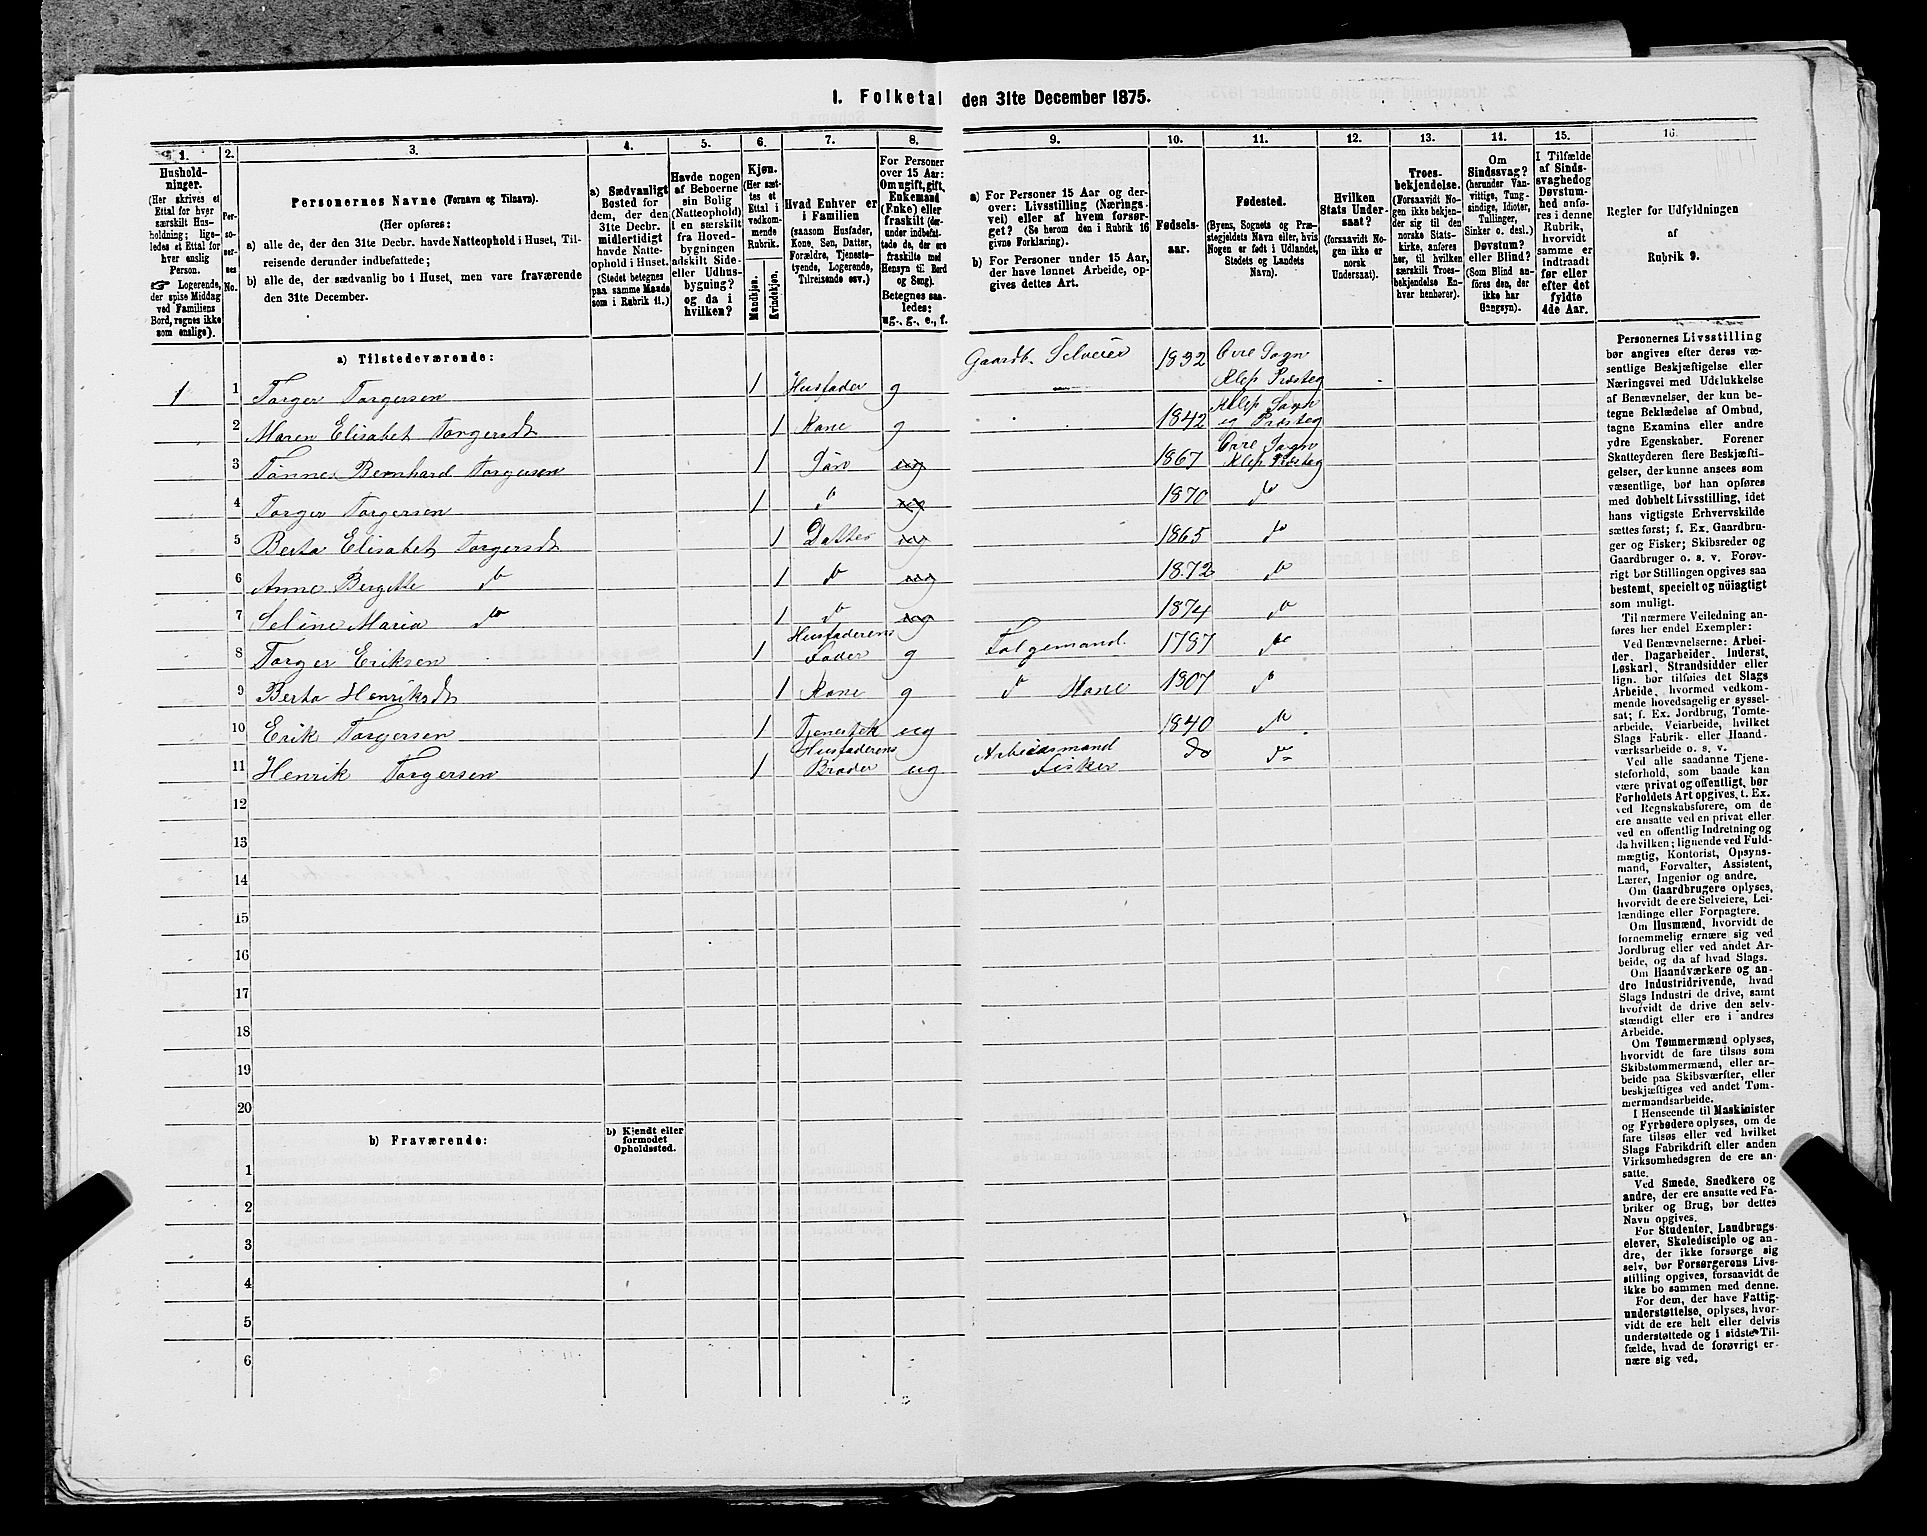 1. Folketal den 31te December 1875.
1. 2. 3. 4. 5. 6. 7. 8. 9. 10. 11. 12. 13. 14. 15. 16.
Hushold-
ninger.
(Her skrives et
Ettal for hver
særskilt Hus-
holdning; lige-
ledes et Ettal for
hver enslig
Person.
☞ Logerende,
der spise Middag
ved Familiens
Bord, regnes ikke
som enslige).
Per-
so-
ner-
nes
No.
Personernes Navne (Fornavn og Tilnavn).
(Her opføres:
a) alle de, der den 31te Decbr. havde Natteophold i Huset, Til-
reisende derunder indbefattede;
b) alle de, der sædvanlig bo i Huset, men vare fraværende
den 31te December.
a) Sædvanligt
Bosted for
dem, der den
31te Decbr.
midlertidigt
havde Natte-
ophold i Huset.
(Stedet betegnes
paa samme Maade
som i Rubrik 11.)
Havde nogen
af Beboerne
sin Bolig
(Natteophold)
i en særskilt
fra Hoved-
bygningen
adskilt Side-
eller Udhus-
bygning?
og da i
hvilken?
Kjøn.
(Her sæt-
tes et
Ettal i
vedkom-
mende
Rubrik.
Mandkjøn.
Kvindekjøn.
Hvad Enhver er
i Familien
(saasom Husfader,
Kone, Søn, Datter,
Forældre, Tjeneste-
tyende, Logerende,
Tilreisende osv.)
For Personer
over 15 Aar:
Om ugift, gift,
Enkemand
(Enke) eller
fraskilt (der-
under indbefat-
tede de, der ere
fraskilte med
Hensyn til Bord
og Seng).
Betegnes saa-
ledes:
ug., g., e., f.
a) For Personer 15 Aar og der-
over: Livsstilling (Nærings-
vei) eller af hvem forsør-
get? (Se herom den i Rubrik 16
givne Forklaring).
b) For Personer under 15 Aar,
der have lønnet Arbeide, op-
gives dettes Art.
Fødsels-
aar.
Fødested.
(Byens, Sognets og Præ-
stegjeldets Navn eller, hvis
Nogen er født i Udlandet,
Stedets og Landets
Navn).
Hvilken
Stats Under-
saat?
(forsaavidt No-
gen ikke er
norsk
Undersaat).
Troes-
bekjendelse.
(Forsaavidt No-
gen ikke bekjen-
der sig til den
norske Stats-
kirke, anføres
her, til hvilken
særskilt Troes-
bekjendelse En-
hver henhører).
Om
Sindssvag?
(herunder Van-
vittige, Tung-
sindige, Idioter,
Tullinger,
Sinker o. desl.)
Døvstum?
eller Blind?
(Som Blind an-
føres den, der
ikke har
Gangsyn).
I Tilfælde
af Sinds-
svaghed og
Døvstum-
hed anfø-
res i denne
Rubrik,
hvorvidt
samme er
indtraadt
før eller
efter det
fyldte
4de Aar.
Regler for Udfyldningen
af
Rubrik 9.
a) Tilstedeværende:
1 1 Torger Torgersen 1 Husfader g Gaardb. Selveier 1832 Orre Sogn Klep Præsteg
2 Maren Elisabet Torgersdt 1 Kone g 1842 Klep Sogn og Præsteg
3 Tønnes Bernhard Torgersen 1 Søn ug 1867 Orre Sogn Klep Præsteg
4 Torger Torgersen 1 do ug 1870 do
5 Berta Elisabet Torgersdt 1 Datter ug 1865 do
6 Anne Bergitte do 1 do ug 1872 do
7 Seline Maria do 1 do ug 1874 do
8 Torger Eriksen 1 Husfaderens Fader g Folgemand 1787 do
9 Berta Henriksdt 1 Kone g do Kone 1807 do
10 Erik Torgersen 1 Tjenestek ug 1840 do
11 Henrik Torgersen 1 Husfaderens Broder ug Arbeidsmand Fisker do do
12
13
14
15
16
17
18
19
20
b) Fraværende:
b) Kjendt eller
formodet
Opholdssted.
1
2
3
4
5
6
Personernes Livsstilling
bør angives efter deres væ-
sentlige Beskjæftigelse eller
Næringsvei med Udelukkelse
af Benævnelser, der kun be-
tegne Beklædelse af Ombud,
tagne Examina eller andre
ydre Egenskaber. Forener
Skatteyderen flere Beskjæfti-
gelser, der kunne ansees som
væsentlige, bør han opføres
med dobbelt Livsstilling, idet
hans vigtigste Erhvervskilde
sættes først; f. Ex. Gaardbru-
ger og Fisker; Skibsreder og
Gaardbruger o. s. v. Forøv-
rigt bør Stillingen opgives saa
bestemt, specielt og nøiagtigt
som muligt.
Til nærmere Veiledning an-
føres her endel Exempler:
Ved Benævnelserne: Arbei-
der, Dagarbeider, Inderst,
Løskarl, Strandsidder eller
lign. bør tilføies det Slags
Arbeide, hvormed vedkom-
mende hovedsagelig er syssel-
sat; f. Ex. Jordbrug, Tomte-
arbeide, Veiarbeide, hvilket
Slags Fabrik- eller Haand-
værksarbeide o. s. v.
Ved alle saadanne Tjene-
steforhold, som baade kan
være privat og offentligt, bør
Forholdets Art opgives, t. Ex.
ved Regnskabsførere, om de
ere ansatte ved en privat eller
ved en offentlig Indretning og
da hvilken; lignende ved Fuld-
mægtig, Kontorist, Opsyns-
mand, Forvalter, Assistent,
Lærer, Ingeniør og andre.
Om Gaardbrugere oplyses,
hvorvidt de ere Selveiere, Lei-
lændinge eller Forpagtere.
Om Husmænd, hvorvidt de
fornemmelig ernære sig ved
Jordbrug eller ved andet Ar-
beide, og da af hvad Slags.
Om Haandværkere og an-
dre Industridrivende, hvad
Slags Industri de drive, samt
hvorvidt de drive den selv-
stændigt eller ere i andres
Arbeide.
Om Tømmermænd oplyses,
hvorvidt de fare tilsøs som
Skibstømmermænd, eller ar-
beide paa Skibsværfter, eller
beskjæftiges ved andet Tøm-
mermandsarbeide.
I Henseende til Maskinister
og Fyrbødere oplyses, om de
fare tilsøs eller ved hvilket
Slags Fabrikdrift eller anden
Virksomhedsgren de ere an-
satte.
Ved Smede, Snedkere og
andre, der ere ansatte ved Fa-
briker og Brug, bør dettes
Navn opgives.
For Studenter, Landbrugs-
elever, Skoledisciple og an-
dre, der ikke forsørge sig
selv, bør Forsørgerens Livs-
stilling opgives, forsaavidt de
ikke bo sammen med denne.
For dem, der have Fattig-
understøttelse, oplyses, hvor-
vidt de ere helt eller delvis
understøttede og i sidste Til-
fælde, hvad de forøvrigt er-
nære sig ved.